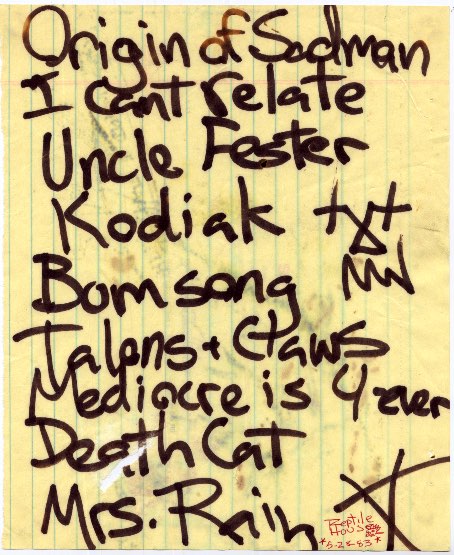 Origin of Sadman
I Cant relate
Uncle Fester
Kodiak
Bum song
Talons + Claws
Mediocre is 4 ever
Death Cat
Mrs. Rain
Reptile
House
*5-28-83*